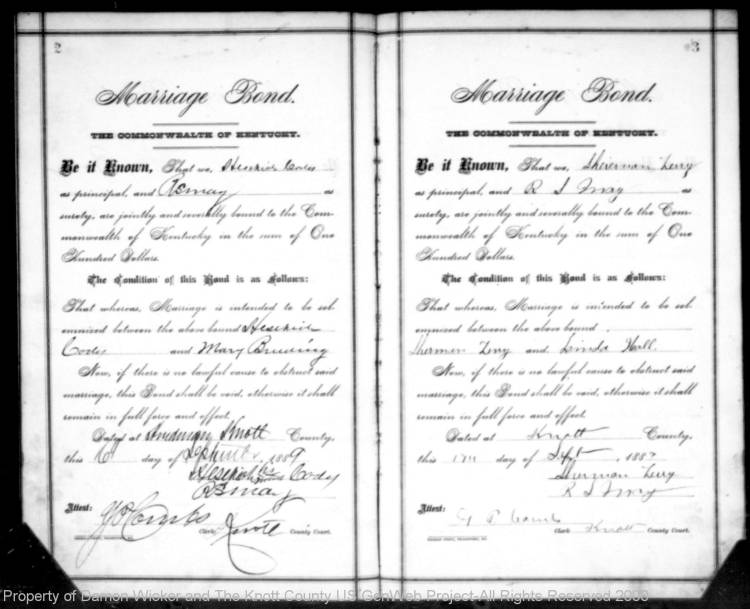 2
Marriage Bond.
THE COMMONWEALTH OF KENTUCKY.
Be it Known, That we, Hesekiah Cody
as principal, and R S May as
surety, are jointly and severally bound to the Com-
monwealth of Kentucky in the sum of One
Hundred Dollars.
The Condition of this Bond is as Follows:
That whereas, Marriage is intended to be sol-
emnized between the above bound Hesekiah
Cody and Mary
Now, if there is no lawful cause to obstruct said
marriage, this Bond shall be void, otherwise it shall
remain in full force and effect.
Dated at Hindman Knott County,
this day of 1889
Hesekiah Cody
R S May
Attest:
Combs
Clerk Knott County Court.
3
Marriage Bond.
THE COMMONWEALTH OF KENTUCKY.
Be it Known, That we, Sherman Terry
as principal, and R S as
surety, are jointly and severally bound to the Com-
monwealth of Kentucky in the sum of One
Hundred Dollars.
The Condition of this Bond is as Follows:
That whereas, Marriage is intended to be sol-
emnized between the above bound
Sherman Terry and Linda Hall
Now, if there is no lawful cause to obstruct said
marriage, this Bond shall be void, otherwise it shall
remain in full force and effect.
Dated at Knott County,
this day of Sept 188
Sherman Terry
R S
Attest:
Clerk Knott County Court.
Property of Damon Wicker and The Knott County US GenWeb Project-All Rights Reserved